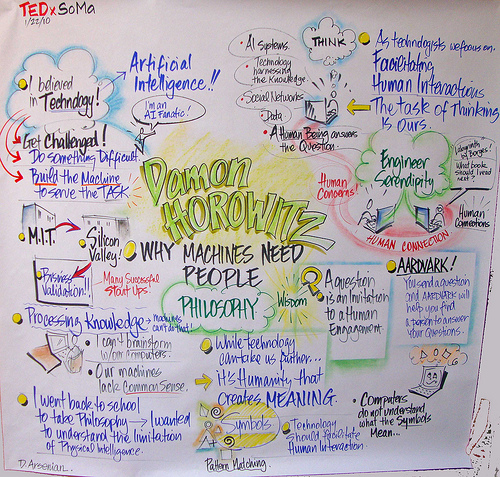 TEDxSoMa
1/22/10
I believed
in Technology!
Artificial
Intelligence!!
I'm an
AI Fanatic!
Get Challenged!
Do something Difficult.
Build the Machine
to serve the TASK
AI Systems.
Technology
harnessing
the Knowledge
Social Networks
Data
A Human Being answers
the Question.
THINK
As technologists we focus on
Facilitating
Human Interactions
The task of Thinking
is Ours.
Damon
HOROWITZ
WHY MACHINES NEED
PEOPLE
PHILOSOPHY
Wisdom
Human
Concerns!
Engineer
Serendipity
Labyrinth
by Borges!
What book
should I read
next?
Human
Connections
HUMAN CONNECTION
M.I.T.
Silicon
Valley!
Business
Validation!!
Many Successful
Start Ups.
AARDVARK!
You send a question
and AARDVARK will
help you find
a person to answer
Your Questions.
A question
is an Invitation
to a Human
Engagement.
Processing Knowledge → machines
can't do that!
I can't brainstorm
w/ our computers.
Our machines
lack Common Sense.
While technology
can take us further...
It's Humanity that
creates MEANING.
I went back to school
to take Philosophy → I wanted
to understand the limitation
of Physical Intelligence.
Symbols
Pattern Matching.
Technology
should facilitate
Human Interaction.
Computers
do not understand
what the Symbols
Mean...
D. Arsenian.